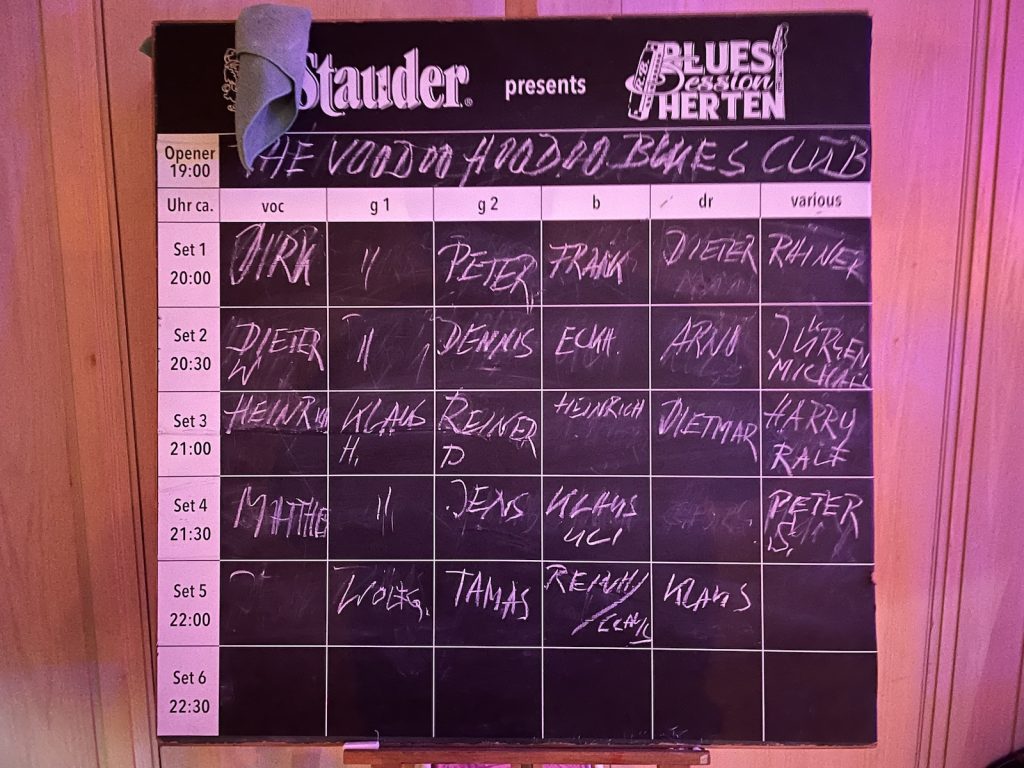 Stauder® presents BLUES Session HERTEN
Opener 19:00 THE VOODOO HOODOO BLUES CLUB
Uhr ca. voc g 1 g 2 b dr various
Set 1 20:00 DIRK " PETER FRANK DIETER RHINER
Set 2 20:30 DIETER W " DENNIS ECKH. ARNO JÜRGEN MICHAEL
Set 3 21:00 HEINRICH KLAUS H. REINER D HEINRICH DIETMAR HARRY RALF
Set 4 21:30 MATTHE " JENS KLAUS ULI PETER S.
Set 5 22:00 WOLFG. TAMAS KLAUS
Set 6 22:30